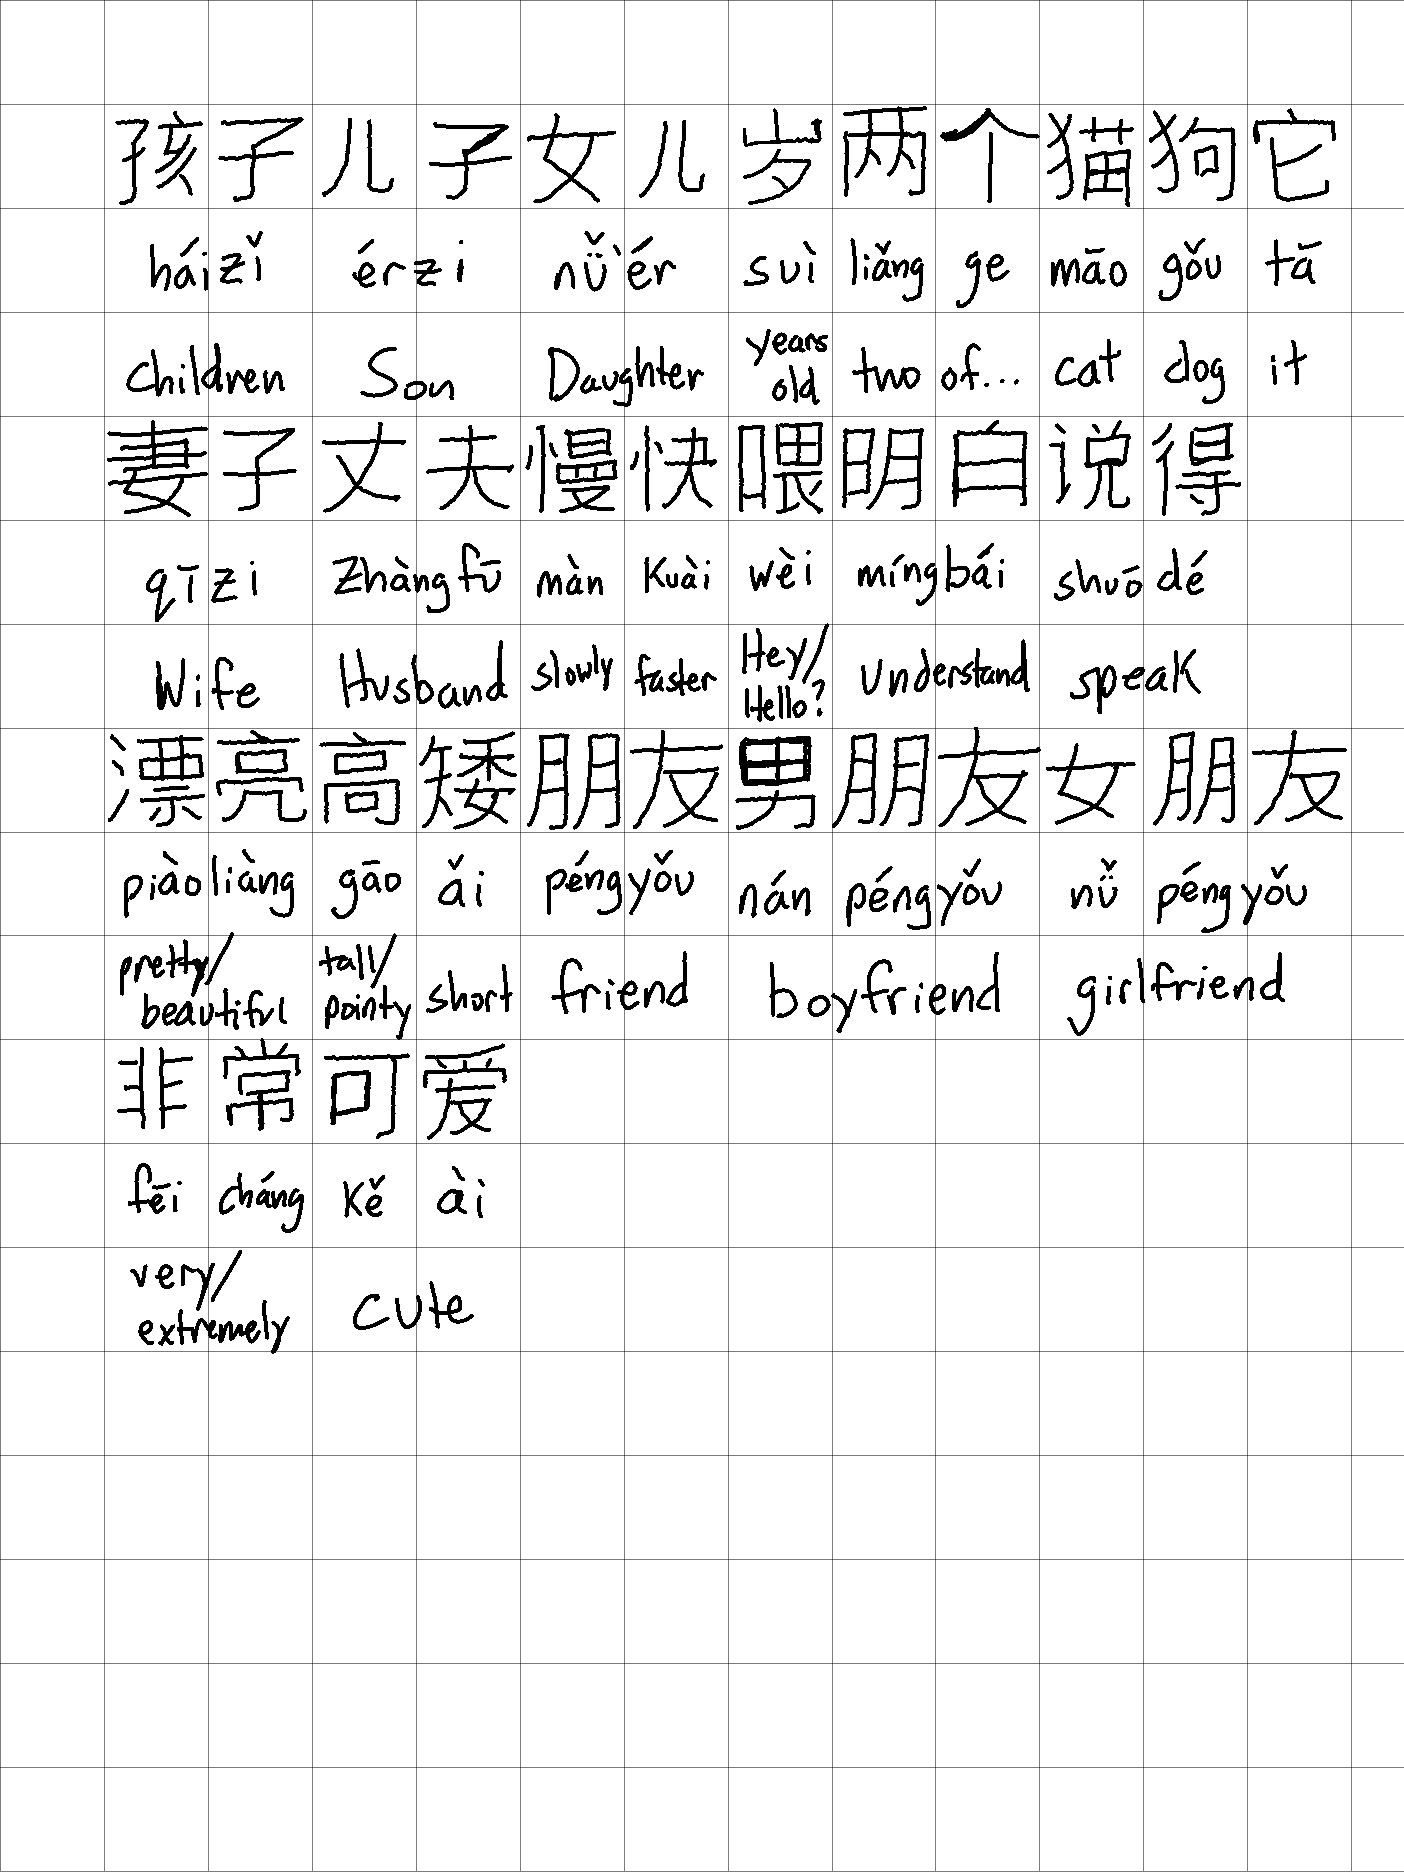 孩子儿子女儿岁两个猫狗它
háizǐ érzi nǚ'ér suì liǎng ge māo gǒu tā
Children Son Daughter years old two of... cat dog it
妻子丈夫慢快喂明白说得
qīzi zhàngfū màn kuài wèi míngbái shuōdé
Wife Husband slowly faster Hey/Hello? understand speak
漂亮高矮朋友男朋友女朋友
piàoliàng gāo ǎi péngyǒu nán péngyǒu nǚ péngyǒu
pretty/beautiful tall/pointy short friend boyfriend girlfriend
非常可爱
fēi cháng kě ài
very/extremely cute